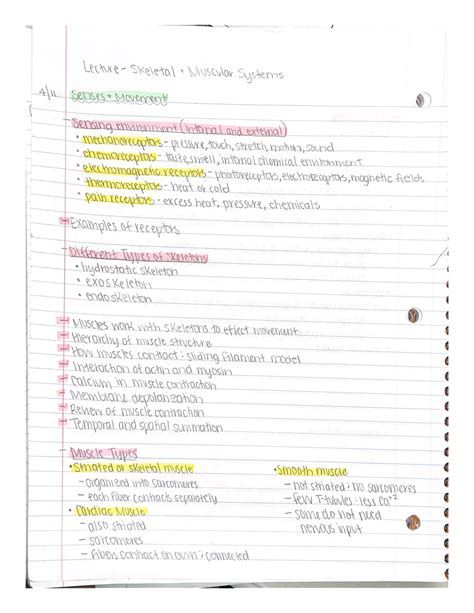 Lecture - Skeletal + Muscular Systems
4/11 Senses + Movement
- Sensing environment (internal and external)
• mechanoreceptors - pressure, touch, stretch, motion, sound
• chemoreceptors - taste, smell, internal chemical environment
• electromagnetic receptors - photoreceptors, electroreceptors, magnetic fields
• thermoreceptors - heat or cold
• pain receptors - excess heat, pressure, chemicals
- Examples of receptors
- Different Types of Skeletons
• hydrostatic skeleton
• exoskeleton
• endoskeleton
- Muscles work with skeletons to effect movement
- Hierarchy of muscle structure
- How muscles contract: sliding filament model
- Interaction of actin and myosin
- Calcium in muscle contraction
- Membrane depolarization
- Review of muscle contraction
- Temporal and spatial summation
- Muscle Types
• Striated or skeletal muscle
- organized into sarcomeres
- each fiber contracts separately
• Cardiac Muscle
- also striated
- sarcomeres
- fibers contract on own: connected
• Smooth muscle
- not striated: no sarcomeres
- few T-tubules: less Ca⁺²
- some do not need
nervous input